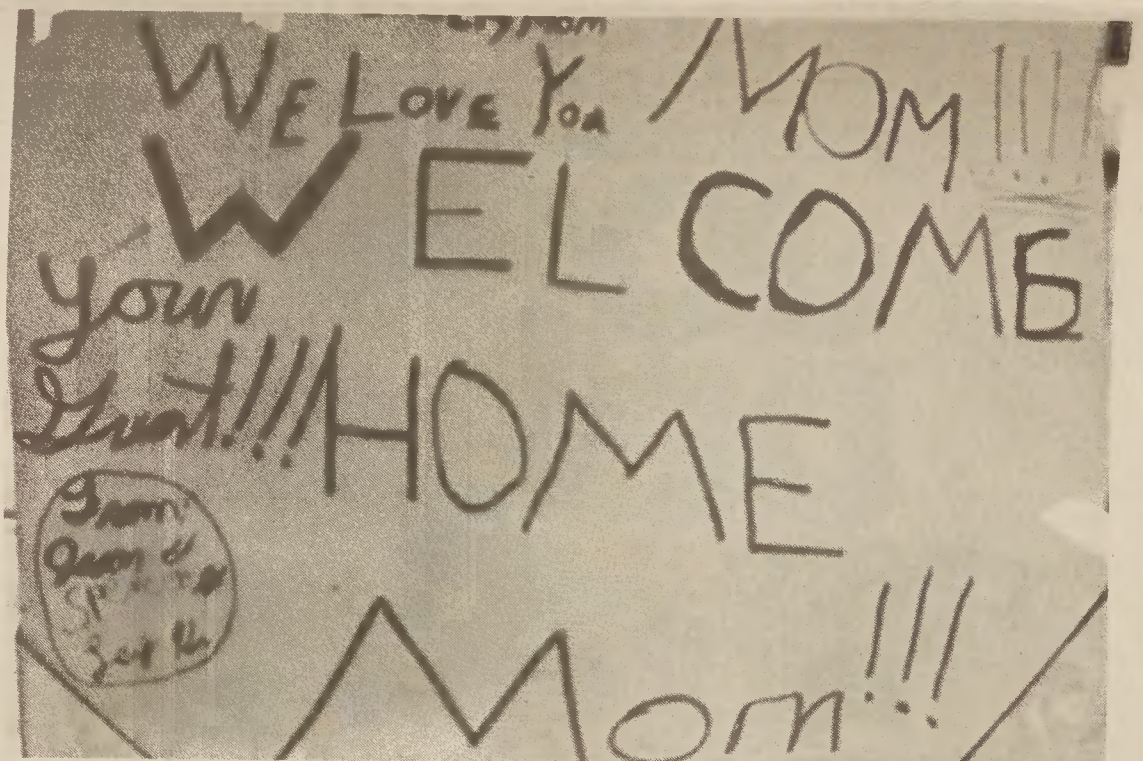 Mom
WE LOVE YOU MOM !!!!
WELCOME
Your
Great!!!
HOME
From:
Mom!!!